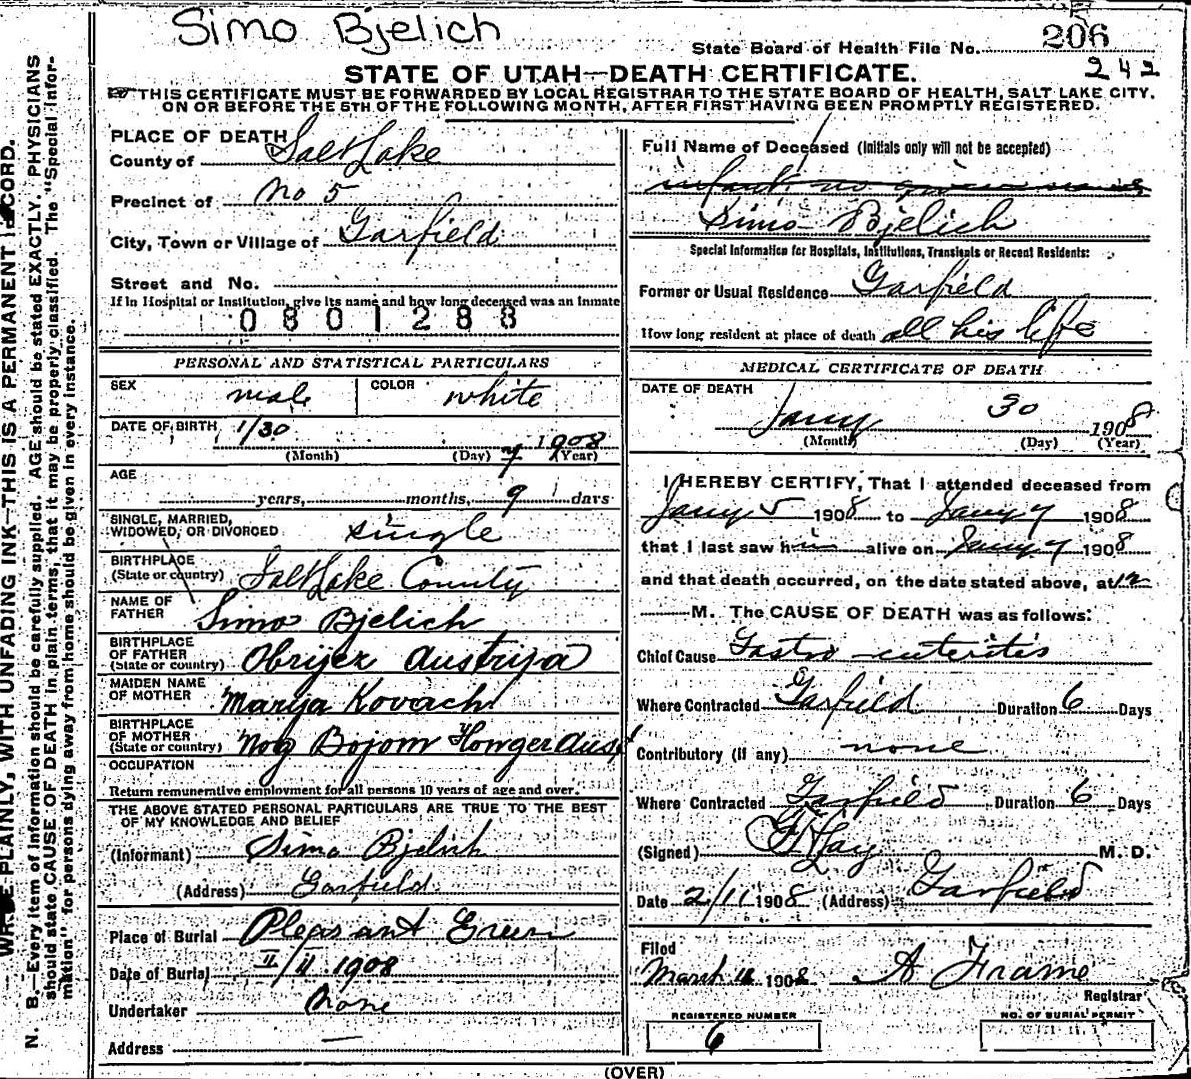 Simo Bjelich
State Board of Health File No. 206
242
STATE OF UTAH—DEATH CERTIFICATE.
THIS CERTIFICATE MUST BE FORWARDED BY LOCAL REGISTRAR TO THE STATE BOARD OF HEALTH, SALT LAKE CITY.
ON OR BEFORE THE 5TH OF THE FOLLOWING MONTH, AFTER FIRST HAVING BEEN PROMPTLY REGISTERED.
WRITE PLAINLY, WITH UNFADING INK—THIS IS A PERMANENT RECORD.
N. B.—Every item of information should be carefully supplied. AGE should be stated EXACTLY. PHYSICIANS
should state CAUSE OF DEATH in plain terms, that it may be properly classified. The "Special Infor-
mation" for persons dying away from home should be given in every instance.
PLACE OF DEATH
County of Salt Lake
Precinct of No 5
City, Town or Village of Garfield
Street and No.
If in Hospital or Institution, give its name and how long deceased was an inmate
0801288
PERSONAL AND STATISTICAL PARTICULARS
SEX male COLOR white
DATE OF BIRTH 1/30 7 1908
(Month) (Day) (Year)
AGE
years, months, 9 days
SINGLE, MARRIED,
WIDOWED, OR DIVORCED single
BIRTHPLACE
(State or country) Salt Lake County
NAME OF
FATHER Simo Bjelich
BIRTHPLACE
OF FATHER
(State or country) Obrijez Austrija
MAIDEN NAME
OF MOTHER Marija Kovach
BIRTHPLACE
OF MOTHER
(State or country) Nog Bojom Honger Aust
OCCUPATION
Return remunerative employment for all persons 10 years of age and over.
THE ABOVE STATED PERSONAL PARTICULARS ARE TRUE TO THE BEST
OF MY KNOWLEDGE AND BELIEF
(Informant) Simo Bjelich
(Address) Garfield
Place of Burial Pleasant Green
Date of Burial II/II 1908
Undertaker None
Address —
Full Name of Deceased (Initials only will not be accepted)
infant no given name
Simo Bjelich
Special Information for Hospitals, Institutions, Transients or Recent Residents:
Former or Usual Residence Garfield
How long resident at place of death all his life
MEDICAL CERTIFICATE OF DEATH
DATE OF DEATH
Jany 30 1908
(Month) (Day) (Year)
I HEREBY CERTIFY, That I attended deceased from
Jany 5 1908 to Jany 7 1908
that I last saw him alive on Jany 7 1908
and that death occurred, on the date stated above, at 12
M. The CAUSE OF DEATH was as follows:
Chief Cause Gastro-enteritis
Where Contracted Garfield Duration 6 Days
Contributory (if any) none
Where Contracted Garfield Duration 6 Days
(Signed) M. D.
Date 2/11 1908 (Address) Garfield
Filed
March 1908 A Frame
Registrar
REGISTERED NUMBER
6
NO. OF BURIAL PERMIT
(OVER)